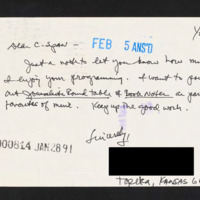 Yo
Dear C-Span - FEB 5 ANS'D
Just a note to let you know how mu
I enjoy your programming. I want to
out Journalists Round table & Book Notes as
favorites of mine. Keep up the good work.
Sincerely,
000814 JAN 28 91
Topeka, Kansas 6